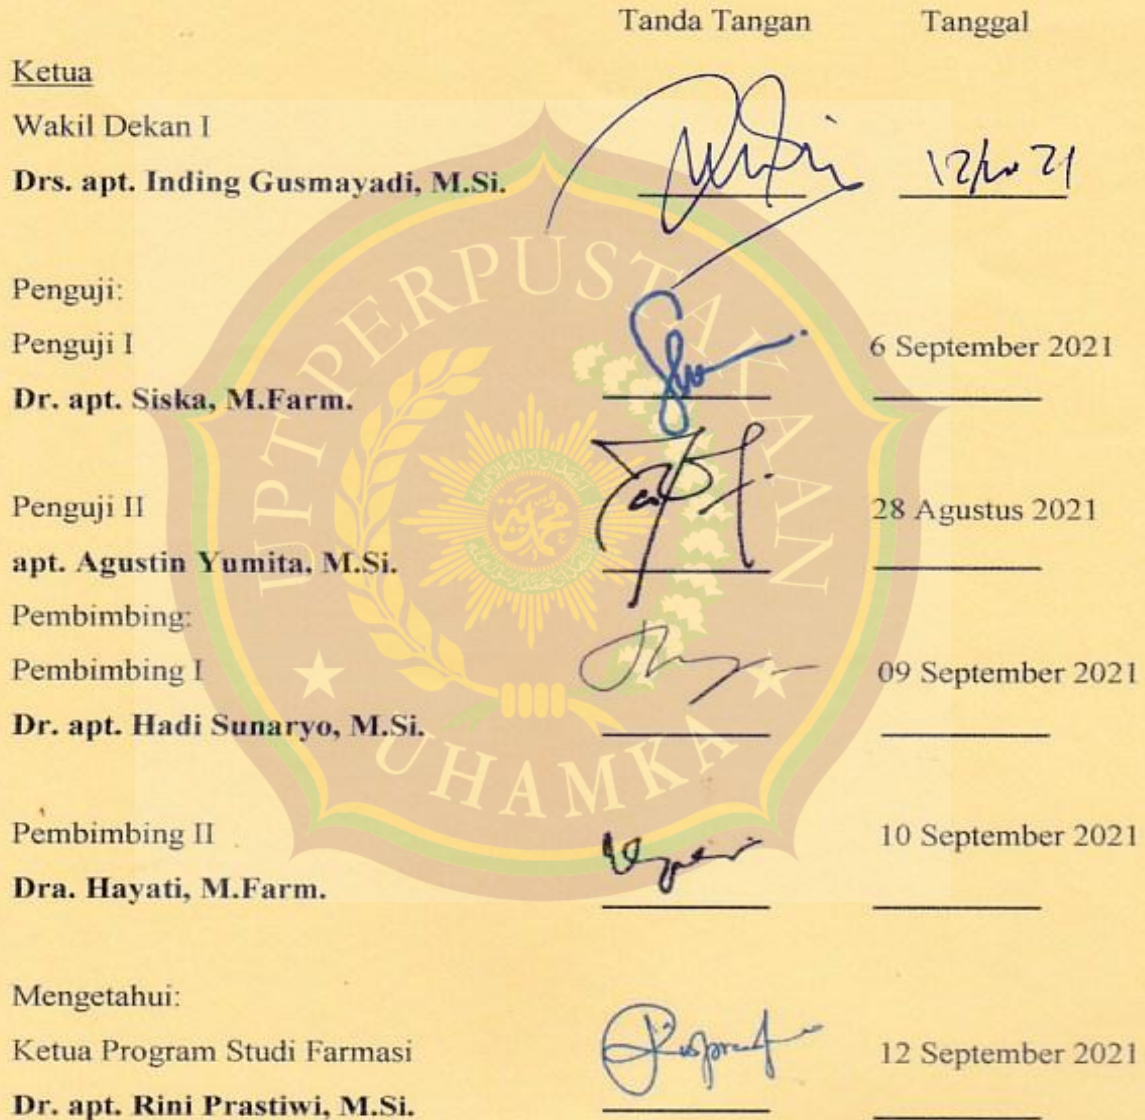 Tanda Tangan Tanggal
Ketua
Wakil Dekan I
Drs. apt. Inding Gusmayadi, M.Si.
Penguji:
Penguji I 6 September 2021
Dr. apt. Siska, M.Farm.
Penguji II 28 Agustus 2021
apt. Agustin Yumita, M.Si.
Pembimbing:
Pembimbing I 09 September 2021
Dr. apt. Hadi Sunaryo, M.Si.
Pembimbing II 10 September 2021
Dra. Hayati, M.Farm.
Mengetahui:
Ketua Program Studi Farmasi 12 September 2021
Dr. apt. Rini Prastiwi, M.Si.
UPT PERPUSTAKAAN
UHAMKA